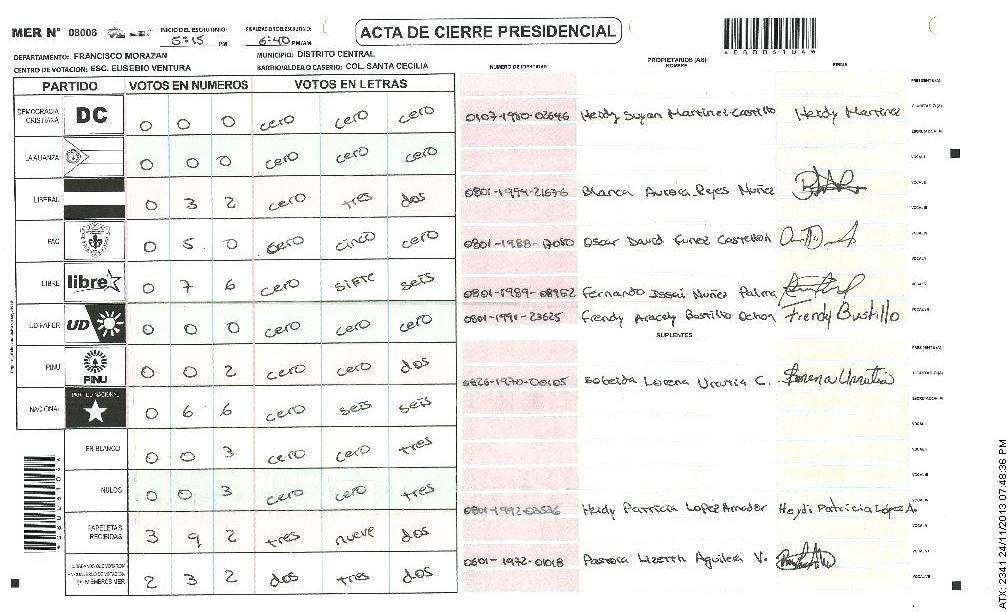 MER N° 08006 INICIO DEL ESCRUTINIO: 5:15 PM FINALIZACION DEL ESCRUTINIO: 6:40 PM/AM ACTA DE CIERRE PRESIDENCIAL
DEPARTAMENTO: FRANCISCO MORAZAN MUNICIPIO: DISTRITO CENTRAL
CENTRO DE VOTACION: ESC. EUSEBIO VENTURA BARRIO/ALDEA O CASERIO: COL. SANTA CECILIA
NUMERO DE IDENTIDAD PROPIETARIOS (AS) NOMBRE FIRMA
PARTIDO VOTOS EN NUMEROS VOTOS EN LETRAS
DEMOCRACIA CRISTIANA DC 0 0 0 cero cero cero
0107-1980-02646 Heidy Suyan Martinez Castillo Heidy Martinez
LA ALIANZA 0 0 0 cero cero cero
LIBERAL 0 3 2 cero tres dos
Blanca Aurora Reyes Nuñez
PAC 0 5 0 cero cinco cero
Oscar David Funez Castellon
LIBRE libre 0 7 6 cero siete seis
0801-1989-08952 Fernando Issai Nuñez Palma
UD/FAPER UD 0 0 0 cero cero cero
0801-1991-23625 Frendy Aracely Bustillo Ochoa Frendy Bustillo
SUPLENTES
PINU PINU 0 0 2 cero cero dos
0826-1970-00105 Lorena Urrutia C. Lorena Urrutia
NACIONAL PARTIDO NACIONAL 0 6 6 cero seis seis
EN BLANCO 0 0 3 cero cero tres
NULOS 0 0 3 cero cero tres
0801-1992-03536 Heidy Patricia Lopez Amador Heydi Patricia López A.
PAPELETAS RECIBIDAS 3 9 2 tres nueve dos
0601-1972-01018 Pastora Lizeth Aguilera V.
(+) MIEMBROS MER 2 3 2 dos tres dos
ATX: 2341 24/11/2013 07:48:36 PM